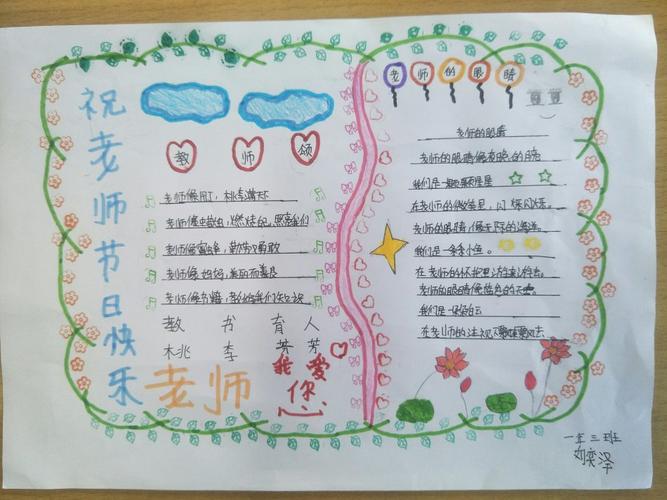 祝老师节日快乐
教师颂
老师像园丁，桃李满天下
老师像蜡烛，燃烧自己照亮我们
老师像蜜蜂，勤劳勇敢
老师像妈妈，美丽而善良
老师像书籍，教给我们知识
教书育人
桃李芬芳
老师
我爱你
老师的眼睛
老师的眼睛
老师的眼睛像夜晚的
我们是一颗颗星星
在老师的
老师的眼睛，像无际的海洋。
我们是一条条小鱼。
在老师的怀抱里游来游去。
老师的眼睛像蓝色的天空。
我们是一朵朵白云
在老师的注视
一年三班
刘奕泽